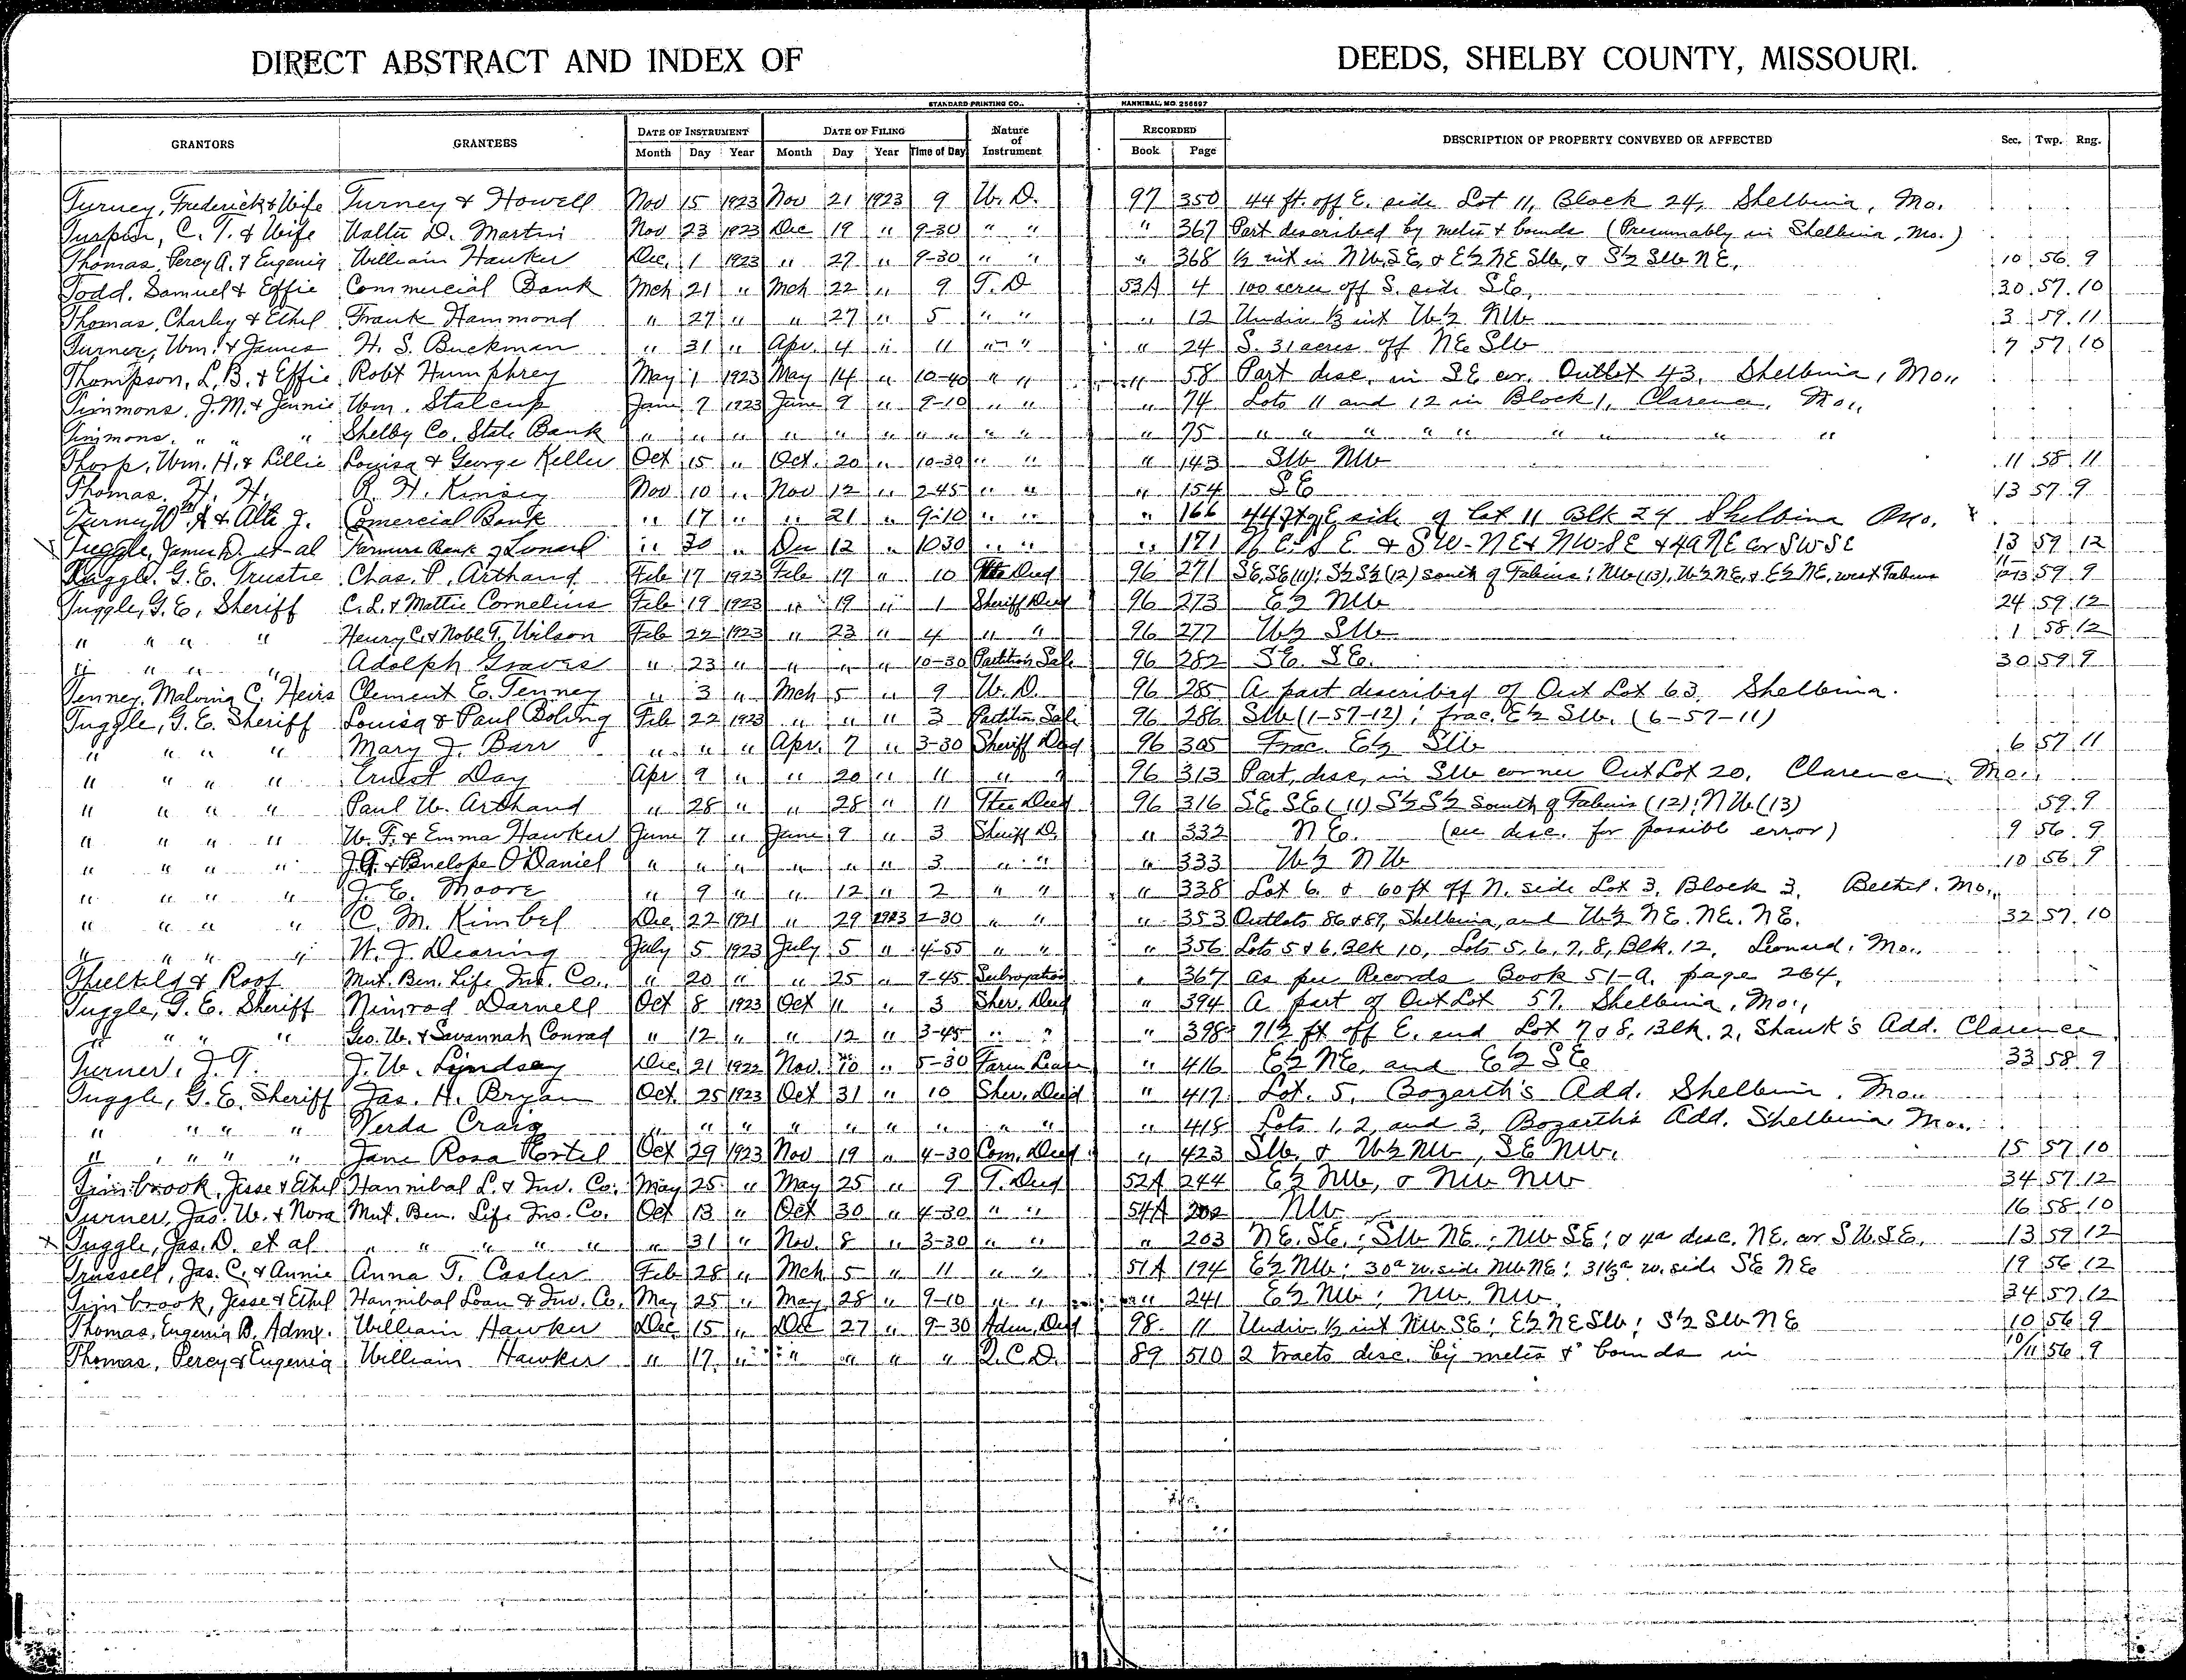 DIRECT ABSTRACT AND INDEX OF DEEDS, SHELBY COUNTY, MISSOURI.
STANDARD PRINTING CO., HANNIBAL, MO. 256697
GRANTORS GRANTEES DATE OF INSTRUMENT DATE OF FILING Nature of Instrument RECORDED DESCRIPTION OF PROPERTY CONVEYED OR AFFECTED Sec. Twp. Rng.
Month Day Year Month Day Year Time of Day Book Page
Turney, Frederick & Wife Turney & Howell Nov 15 1923 Nov 21 1923 9 W. D. 97 350 44 ft. off E. side Lot 11, Block 24, Shelbina, Mo.
Turpin, C. T. & Wife Walter D. Martin Nov 23 1923 Dec 19 " 9-30 " " " 367 Part described by metes & bounds (Presumably in Shelbina, Mo.)
Thomas, Percy A. & Eugenia William Hawker Dec. 1 1923 " 27 " 9-30 " " " 368 1/3 int in NW. SE, & E½ NE SW, & S½ SW NE, 10 56 9
Todd, Samuel & Effie Commercial Bank Mch 21 " Mch 22 " 9 T. D 53A 4 100 acres off S. side SE, 30 57 10
Thomas, Charley & Ethel Frank Hammond " 27 " " 27 " 5 " " " 12 Undiv. 1/3 int W½ NW 3 59 11
Turner, Wm. & James H. S. Buckman " 31 " Apr. 4 " 11 " " " 24 S. 31 acres off NE SW 7 57 10
Thompson, L. B. & Effie Robt Humphrey May 1 1923 May 14 " 10-40 " " " 58 Part desc. in SE cor. Outlot 43, Shelbina, Mo.,
Timmons, J. M. & Jennie Wm. Stalcup June 7 1923 June 9 " 9-10 " " " 74 Lots 11 and 12 in Block 1, Clarence, Mo.,
Timmons, " " " Shelby Co. State Bank " " " " " " " " " " " 75 " " " " " " " " "
Thorp, Wm. H. & Lillie Louisa & George Keller Oct 15 " Oct. 20 " 10-30 " " " 143 SW NW 11 58 11
Thomas, H. H. R. H. Kinsey Nov 10 " Nov 12 " 2-45 " " " 154 SE 13 57 9
Turney Wm A & Alta J. Comercial Bank " 17 " " 21 " 9-10 " " " 166 44 ft of E side of Lot 11 Blk 24 Shelbina Mo.
Tuggle, James D. et-al Farmers Bank of Lonard " 30 " Dec 12 " 1030 " " " 171 N E-S E & SW-NE & NW-SE & 4a NE cor SW-SE 13 59 12
Tuggle, G. E. Trustee Chas. P. Arthand Feb 17 1923 Feb 17 " 10 Tte Deed 96 271 SE, SE (11); S½ S½ (12) south of Fabius; NW (13), W½ NE, & E½ NE, west Fabius 59 9
Tuggle, G. E, Sheriff C. L. & Mattie Cornelius Feb 19 1923 " 19 " 1 Sheriff Deed 96 273 E½ NW 24 59 12
" " " " Henry C. & Noble T. Wilson Feb 22 1923 " 23 " 4 " " 96 277 W½ SW 1 58 12
" " " " Adolph Graves " 23 " " " " 10-30 Partition Sale 96 282 SE. SE. 30 59 9
Tenney, Malvina C, Heirs Clement E. Tenney " 3 " Mch 5 " 9 W. D. 96 285 A part describing of Out Lot 63, Shelbina.
Tuggle, G. E. Sheriff Louisa & Paul Boling Feb 22 1923 " " " 3 Partition Sale 96 286 SW (1-57-12); frac. E½ SW. (6-57-11)
" " " " Mary J. Barr " " " Apr. 7 " 3-30 Sheriff Deed 96 305 Frac. E½ SW 6 57 11
" " " " Ernest Day Apr 9 " " 20 " 11 " " 96 313 Part, desc, in SW corner Out Lot 20, Clarence Mo.,
" " " " Paul W. Arthand " 28 " " 28 " 11 Ttee Deed 96 316 SE SE (11) S½ S½ South of Fabius (12); NW (13) 59 9
" " " " W. F. & Emma Hawker June 7 " June 9 " 3 Sheriff D. " 332 NE. (see desc. for possible error) 9 56 9
" " " " J. G. & Penelope O'Daniel " " " " " " 3 " " " 333 W½ NW 10 56 9
" " " " J. E. Moore " 9 " " 12 " 2 " " " 338 Lot 6. & 60 ft off N. side Lot 3, Block 3, Bethel, Mo.,
" " " " C. M. Kimbel Dec. 22 1921 " 29 1923 2-30 " " " 353 Outlots 86 & 89, Shelbina, and W½ NE. NE. NE. 32 57 10
" " " " W. J. Dearing July 5 1923 July 5 " 4-55 " " " 356 Lots 5 & 6, Blk 10, Lots 5, 6, 7, 8, Blk. 12, Leonard, Mo.,
Threlkeld & Roof Mut. Ben. Life Ins. Co., " 20 " " 25 " 9-45 Subrogation " 367 As per Records Book 51-A, page 264,
Tuggle, G. E. Sheriff Nimrod Darnell Oct 8 1923 Oct 11 " 3 Sher. Deed " 394 A part of Out Lot 57, Shelbina, Mo.,
" " " " Geo. W. & Savannah Conrad " 12 " " 12 " 3-45 " " " 398 71½ ft off E. end Lot 7 & 8, Blk. 2, Shank's Add. Clarence
Turner, J. T. J. W. Lindsay Dec. 21 1922 Nov. 10 " 5-30 Farm Lease " 416 E½ NE, and E½ SE 33 58 9
Tuggle, G. E, Sheriff Jas. H. Bryan Oct. 25 1923 Oct 31 " 10 Sher. Deed " 417 Lot. 5, Bozarth's Add. Shelbina, Mo.,
" " " " Verda Craig " " " " " " " " " " 418 Lots 1, 2, and 3, Bozarth's Add. Shelbina Mo.,
" " " " Jane Rosa Hortel Oct 29 1923 Nov 19 " 4-30 Com. Deed " 423 SW, & W½ NW, SE NW, 15 57 10
Timbrook, Jesse & Ethel Hannibal L. & Inv. Co. May 25 " May 25 " 9 T. Deed 52A 244 E½ NW, & NW NW 34 57 12
Turner, Jas. W. & Nora Mut. Ben. Life Ins. Co. Oct 13 " Oct 30 " 4-30 " " 54A 202 NW 16 58 10
Tuggle, Jas. D. et al " " " " " " 31 " Nov. 8 " 3-30 " " " 203 NE. SE.; SW NE; NW SE; & 4a desc. NE. cor SW. SE. 13 59 12
Trussell, Jas. C. & Annie Anna T. Casler Feb 28 " Mch 5 " 11 " " 51A 194 E½ NW; 30a w. side NW NE; 31½a w. side SE NE 19 56 12
Timbrook, Jesse & Ethel Hannibal Loan & Inv. Co. May 25 " May 28 " 9-10 " " " 241 E½ NW; NW, NW. 34 57 12
Thomas, Eugenia B. Admx. William Hawker Dec 15 " Dec 27 " 9-30 Adm. Deed 98 11 Undiv. 1/3 int NW SE; E½ NE SW; S½ SW NE 10 56 9
Thomas, Percy & Eugenia William Hawker " 17 " " " " " Q. C. D. 89 510 2 tracts desc. by metes & bounds in 10/11 56 9